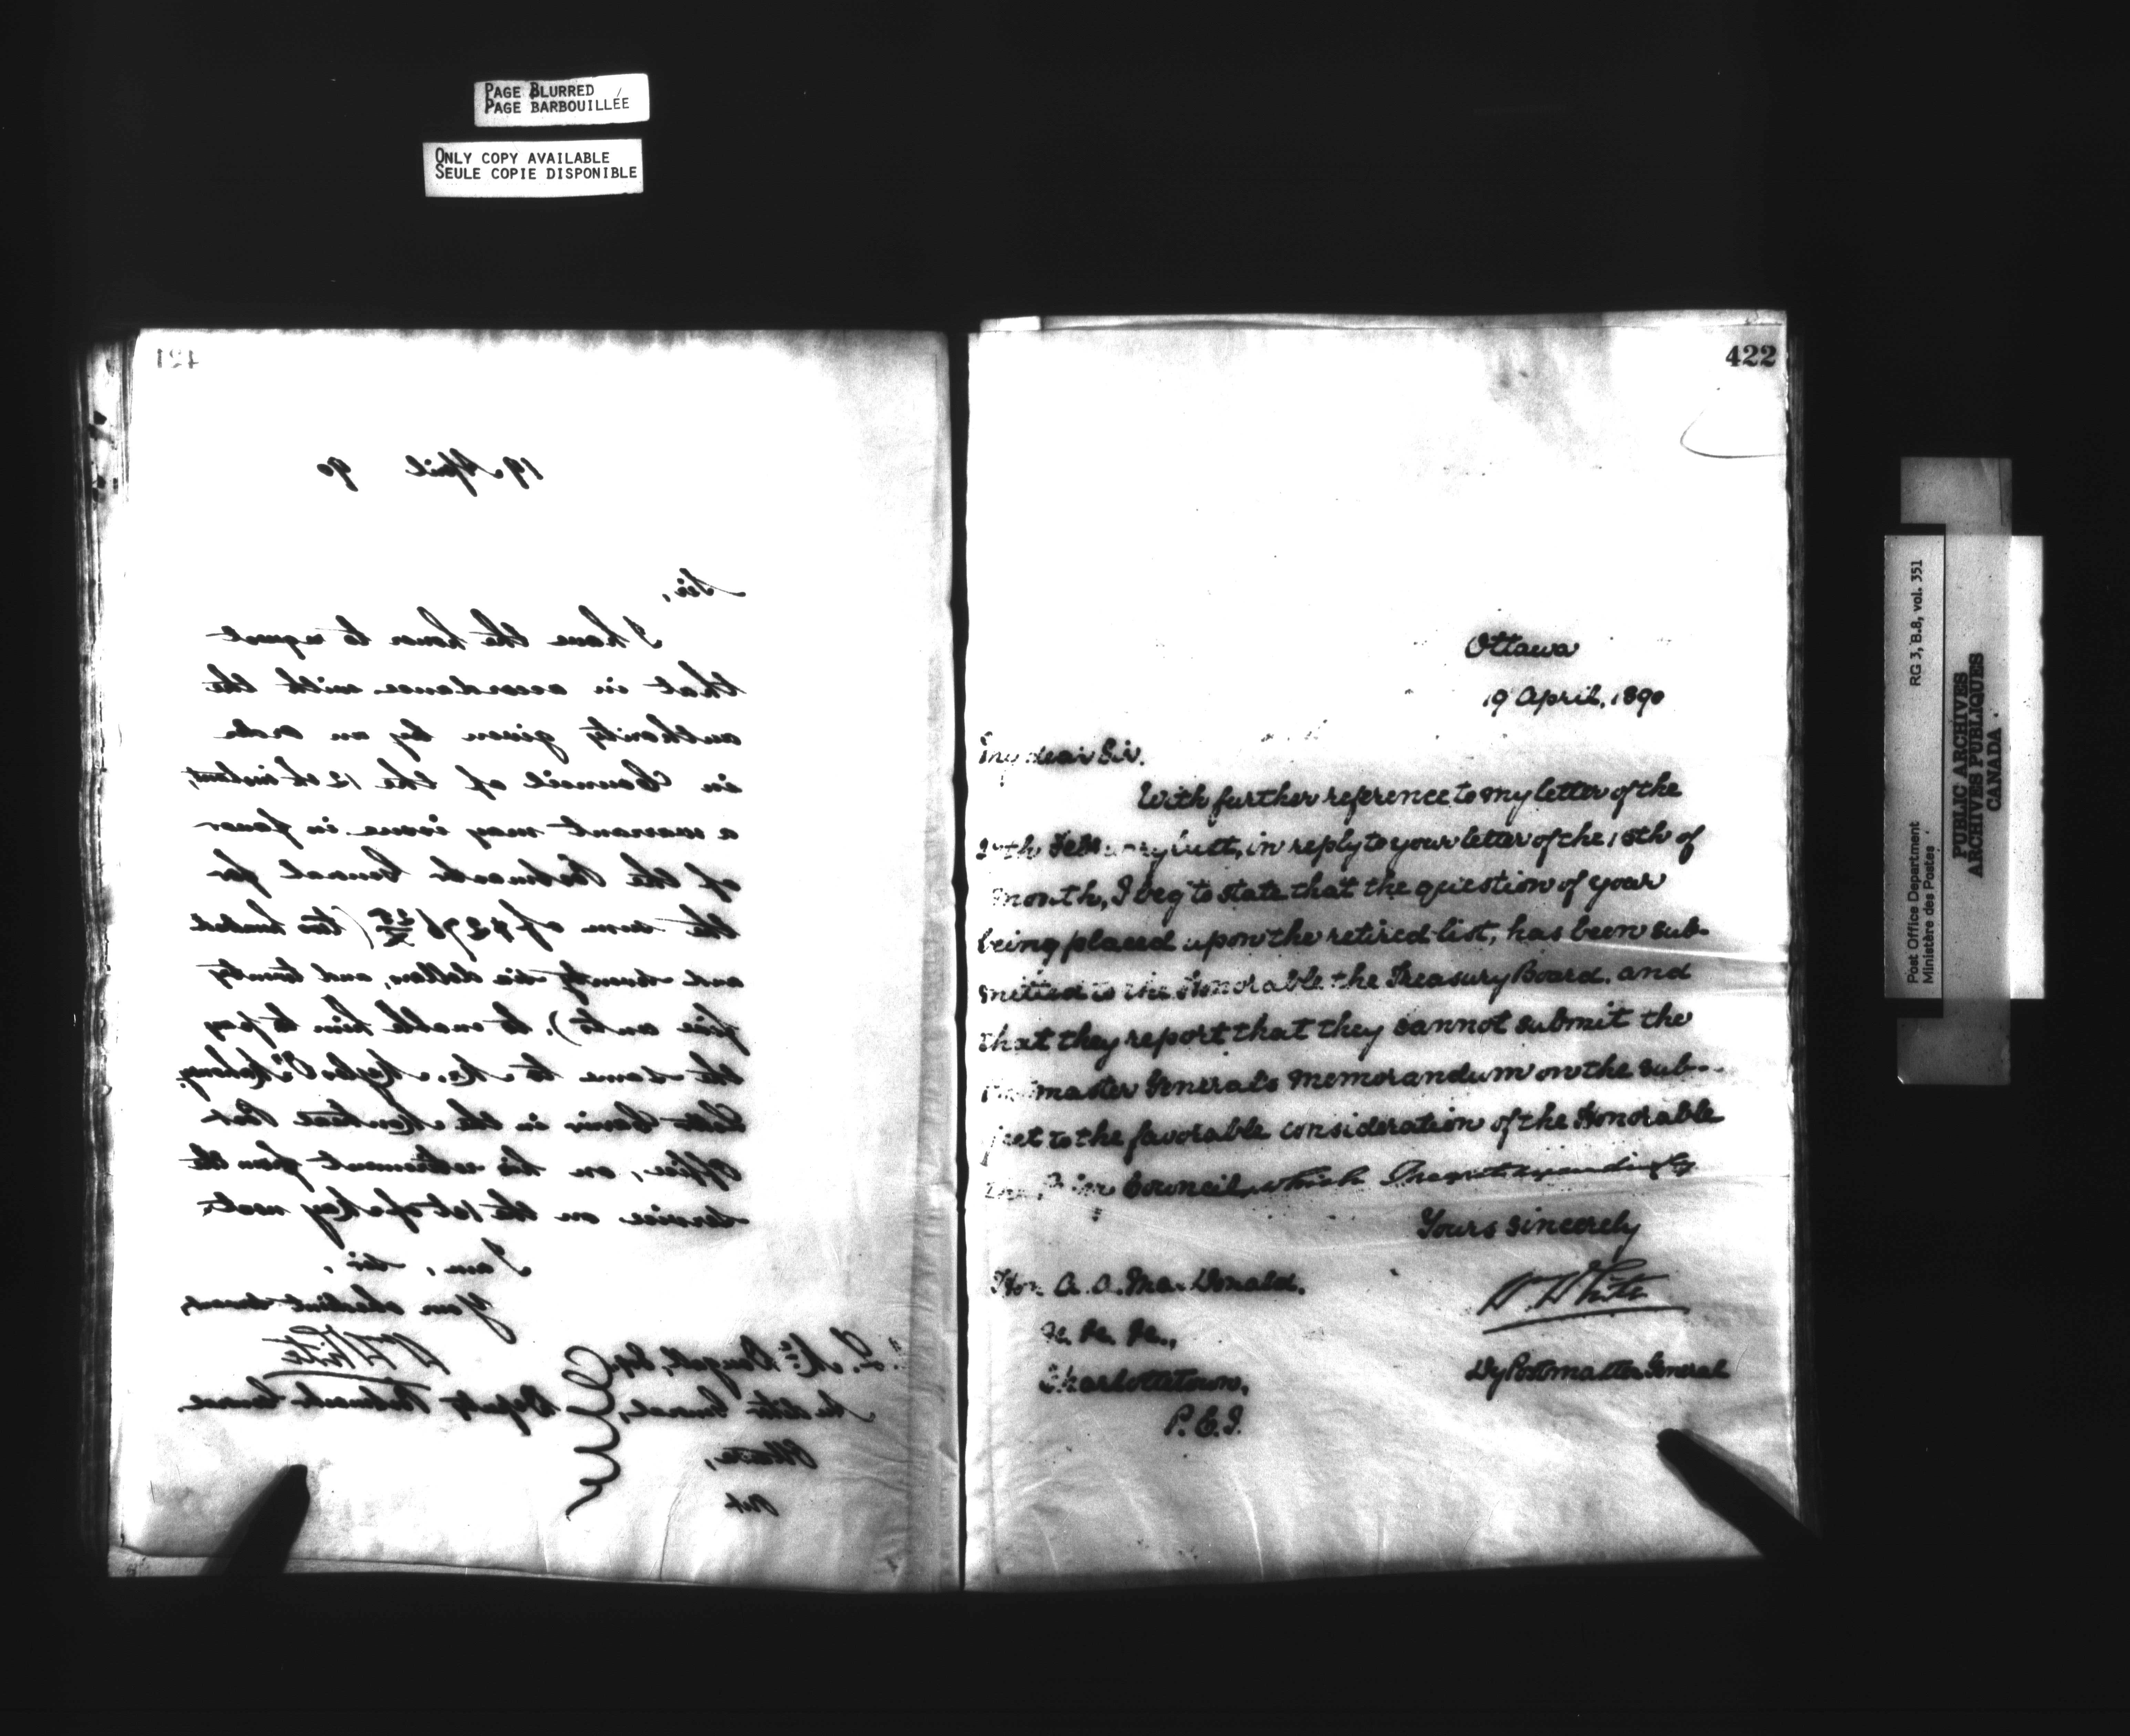 PAGE BLURRED
PAGE BARBOUILLÉE
ONLY COPY AVAILABLE
SEULE COPIE DISPONIBLE
421
19 April 90
Sir,
I have the honor to request
that in accordance with the
authority given by an order
in Council of the 12th instant,
a warrant may issue in favor
of the Postmaster General for
the sum of $276 25/ (two hundred
and seventy six dollars, and twenty
five cents), to enable him to pay
the same to Mr. O'Mahony,
Letter Carrier in the Montreal Post
Office, on his retirement from the
service on the 1st of May next.
I am, Sir,
Your obedient servant,
W White
Deputy Postmaster General
J. L. McDougall, Esq.
Auditor General,
Ottawa,
Ont
422
Ottawa
19 April, 1890
My dear Sir.
With further reference to my letter of the
February ult, in reply to your letter of the 15th of
month, I beg to state that the question of your
being placed upon the retired list, has been sub-
mitted to the Honorable the Treasury Board. and
that they report that they cannot submit the
master Generals Memorandum on the sub-
ject to the favorable consideration of the Honorable
the Council, which I regret
Yours sincerely
W White
Dy Postmaster General
Hon A. A. MacDonald.
Charlottetown,
P. E. I.
Post Office Department RG 3, B.8, vol. 351
Ministère des Postes
PUBLIC ARCHIVES
ARCHIVES PUBLIQUES
CANADA